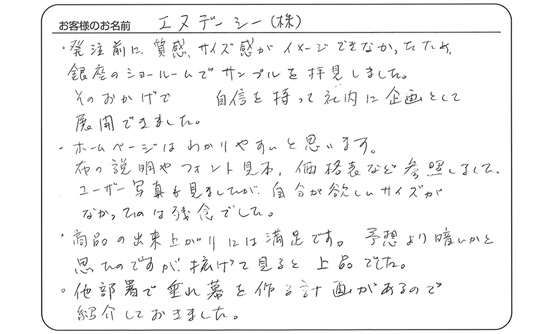 お客様のお名前 エヌデーシー(株)
・発注前に、質感、サイズ感がイメージできなかったため、
銀座のショールームでサンプルを拝見しました。
そのおかげで 自信を持って社内に企画として
展開できました。
・ホームページはわかりやすいと思います。
布の説明やフォント見本、価格表など参照しまして、
ユーザー写真も見ましたが、自分が欲しいサイズが
なかったのは残念でした。
・商品の出来上がりには満足です。 予想より暗いかと
思ったのですが、拡げて見ると上品でした。
・他部署で垂れ幕を作る計画があるので
紹介しておきました。